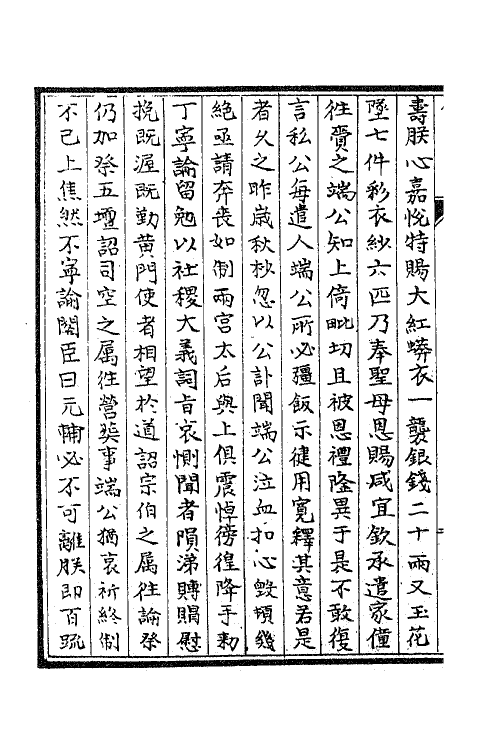 壽朕心嘉悅特賜大紅蟒衣一襲銀錢二十兩又玉花
墜七件彩衣紗六匹乃奉聖母恩賜咸宜欽承遣家僮
往賫之端公知上倚毗切且被恩禮隆異于是不敢復
言私公每遣人端公所必彊飯示徤用寛釋其意若是
者久之昨歳秋杪忽以公訃聞端公泣血扣心毀頓幾
絶亟請奔喪如制兩宮太后與上俱震悼徬徨降手勅
丁寧諭留勉以社稷大義詞㫖哀惻聞者隕涕賻賜慰
挽既渥既勤黄門使者相望於道詔宗伯之屬往諭祭
仍加祭五壇詔司空之屬往營葬事端公猶哀祈終制
不已上焦然不寧諭閣臣曰元輔必不可離朕即百䟽